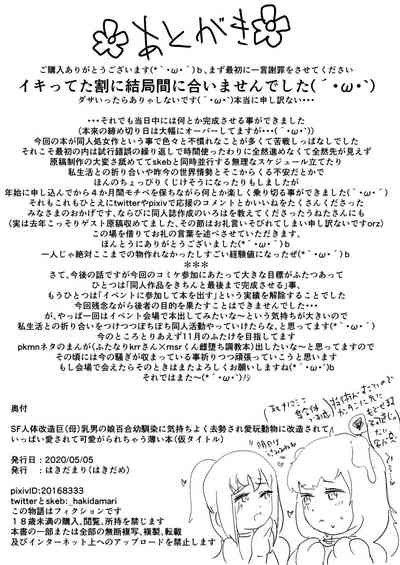 あとがき
ご購入ありがとうございます(*´･ω･`)ｂ、まず最初に一言謝罪をさせてください
イキってた割に結局間に合いませんでした(´･ω･`)
ダサいったらありゃしないです(´･ω･`)本当に申し訳ない･･･
･･･それでも当日中には何とか完成させる事ができました
(本来の締め切り日は大幅にオーバーしてますが･･･(´･ω･`))
今回の本が同人処女作という事で色々と不慣れなことが多くて苦戦しっぱなしでした
それこそ最初の内は試行錯誤の繰り返しで時間使ったわりに全然進めなくて全然先が見えず
原稿制作の大変さ舐めててskebと同時並行する無理なスケジュール立てたり
私生活との折り合いや昨今の世界情勢とそこからくる不安だとかで
ほんのちょっぴりくじけそうになったりもしましたが
年始に申し込んでから４か月間モチベを保ちながら何とか楽しく乗り切る事ができました(*´･ω･`)
それもこれもひとえにtwitterやpixivで応援のコメントとかいいねをたくさんくださった
みなさまのおかげです、ならびに同人誌作成のいろはを教えてくださったうねたさんにも
(実は去年こっそりゲスト原稿収めてました、その節はお礼言いそびれてしまい申し訳ないですorz)
この場を借りてお礼の言葉を述べさせていただきます、
ほんとうにありがとうございました(*´･ω･`)ｂ
一人じゃ絶対ここまでの物作れなかったしすごい経験値になったぜ(*´･ω･`)ｂ
＊＊＊
さて、今後の話ですが今回のコミケ参加にあたって大きな目標がふたつあって
ひとつは「同人作品をきちんと最後まで完成させる」事、
もうひとつは「イベントに参加して本を出す」という実績を解除することでした
今回残念ながら後者の目的を果たすことはできませんでした･･･
が、やっぱ一回はイベント会場で本出してみたいな～という気持ちが大きいので
私生活との折り合いをつけつつぼちぼち同人活動やっていけたらな、と思ってます(*´･ω･`)
今のところとりあえず11月のふたけを目指してます
pkmnネタのまんが(ふたなりkrrさん×msrくん雌堕ち調教本)出したいな～と思ってますので
その頃には今の騒ぎが収まっている事祈りつつ頑張っていこうと思います
もし会場で会えたらそのときはまたよろしくお願いしますね(*´･ω･`)ｂ
それではまた～(*´･ω･`)ﾉｼ
奥付
SF人体改造巨(母)乳男の娘百合幼馴染に気持ちよく去勢され愛玩動物に改造されて
いっぱい愛されて可愛がられちゃう薄い本(仮タイトル)
発行日：2020/05/05
発行：はきだまり(はきだめ)
pixivID:20168333
twitterとskeb:_hakidamari
この物語はフィクションです
１８歳未満の購入、閲覧、所持を禁じます
本書の一部または全部の無断複写、複製、転載
及びインターネット上へのアップロードを禁止します